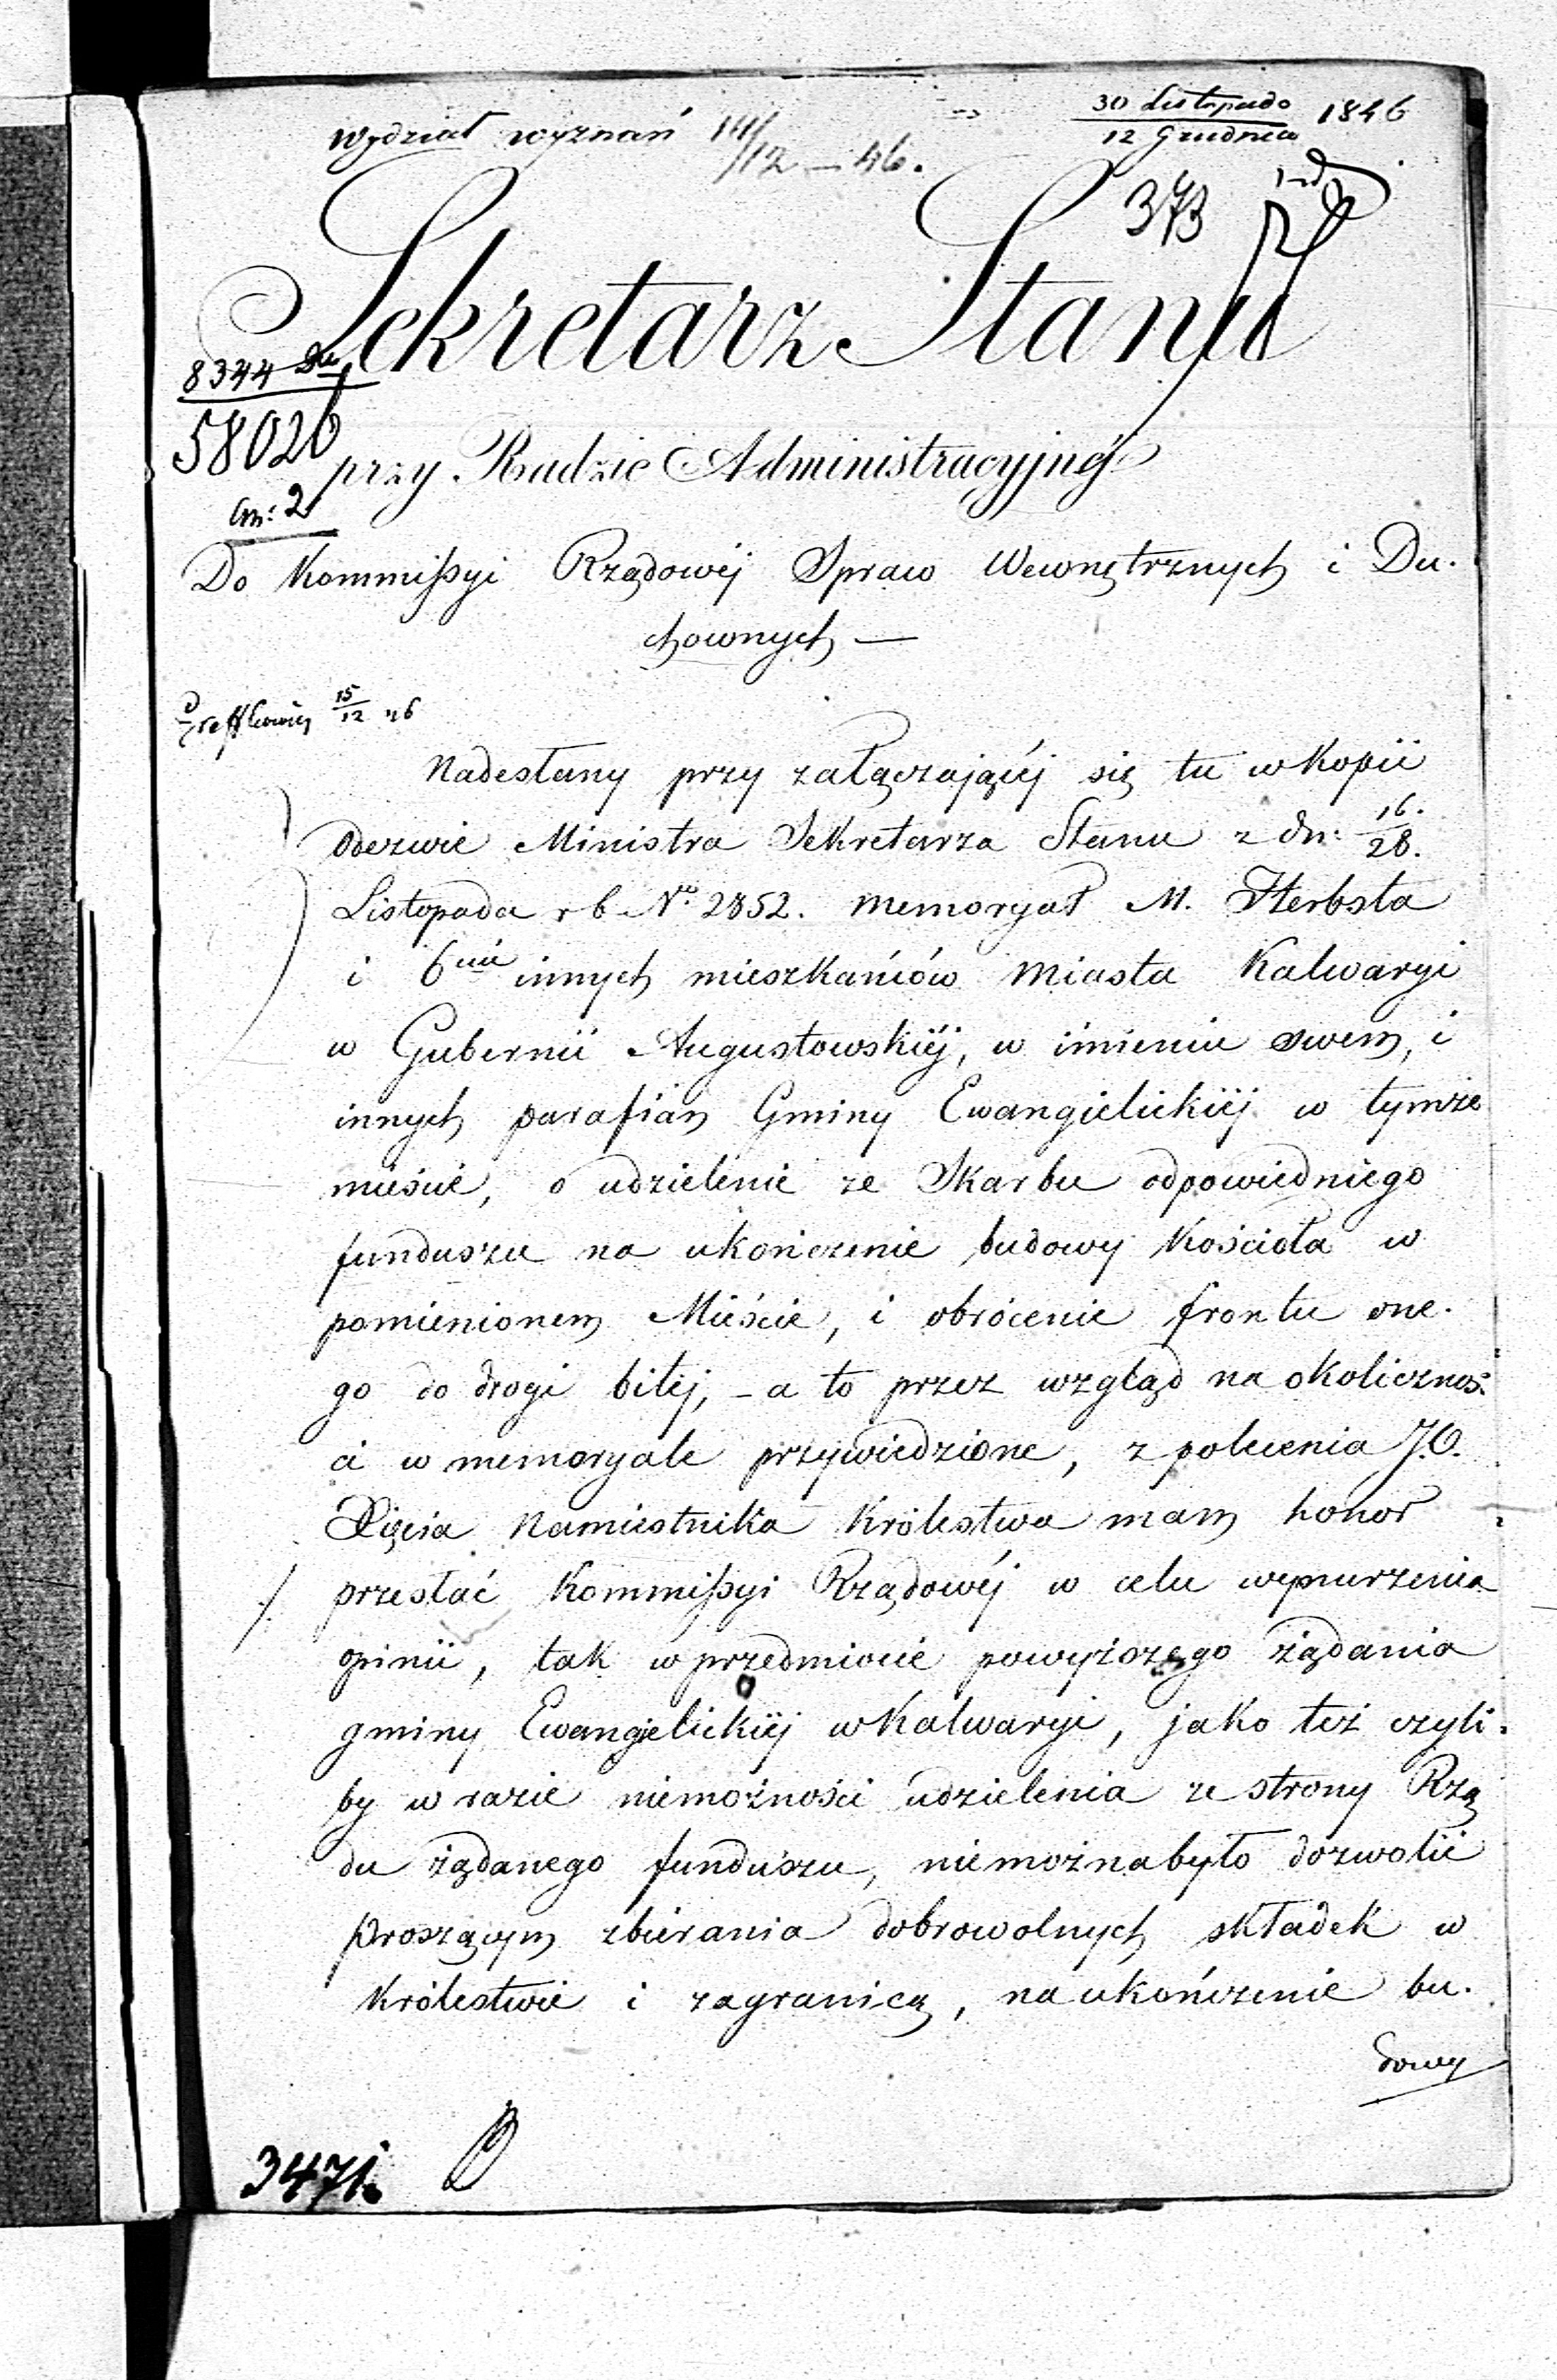 Wydział wyznań 14/12 – 46.
30 Listopada
12 Grudnia 1846
373
Sekretarz Stanu
8344
58026
przy Radzie Administracyjnéj
an: 2
Do Kommissyi Rządowéj Spraw Wewnętrznych i Du-
chownych —
15/12 46
Nadesłany przy załączającéj się tu w Kopii
odezwie Ministra Sekretarza Stanu z dn: 16./28.
Listopada r b No 2852. memoryał M. Herbsta
i 6ciu innych mieszkańców Miasta Kalwaryi
w Gubernii Augustowskiéj, w imieniu swem, i
innych parafian Gminy Ewangielickiéj w tymże
mieście, o udzielenie ze Skarbu odpowiedniego
funduszu na ukończenie budowy Kościoła w
pomienionem Mieście, i obrócenie frontu one-
go do drogi bitéj, – a to przez wzgląd na okolicznoś-
ci w memoryale przywiedzione, z polecenia J.O.
Xięcia Namiestnika Królestwa mam honor
przesłać Kommissyi Rządowéj w celu wynurzenia
opinii, tak w przedmiocie powyższego żądania
gminy Ewangielickiéj w Kalwaryi, jako też czyli-
by w razie niemożności udzielenia ze strony Rzą
du żądanego funduszu, niemożnabyło dozwolić
proszącym zbierania dobrowolnych składek w
Królestwie i zagranicą, na ukończenie bu-
dowy
3471